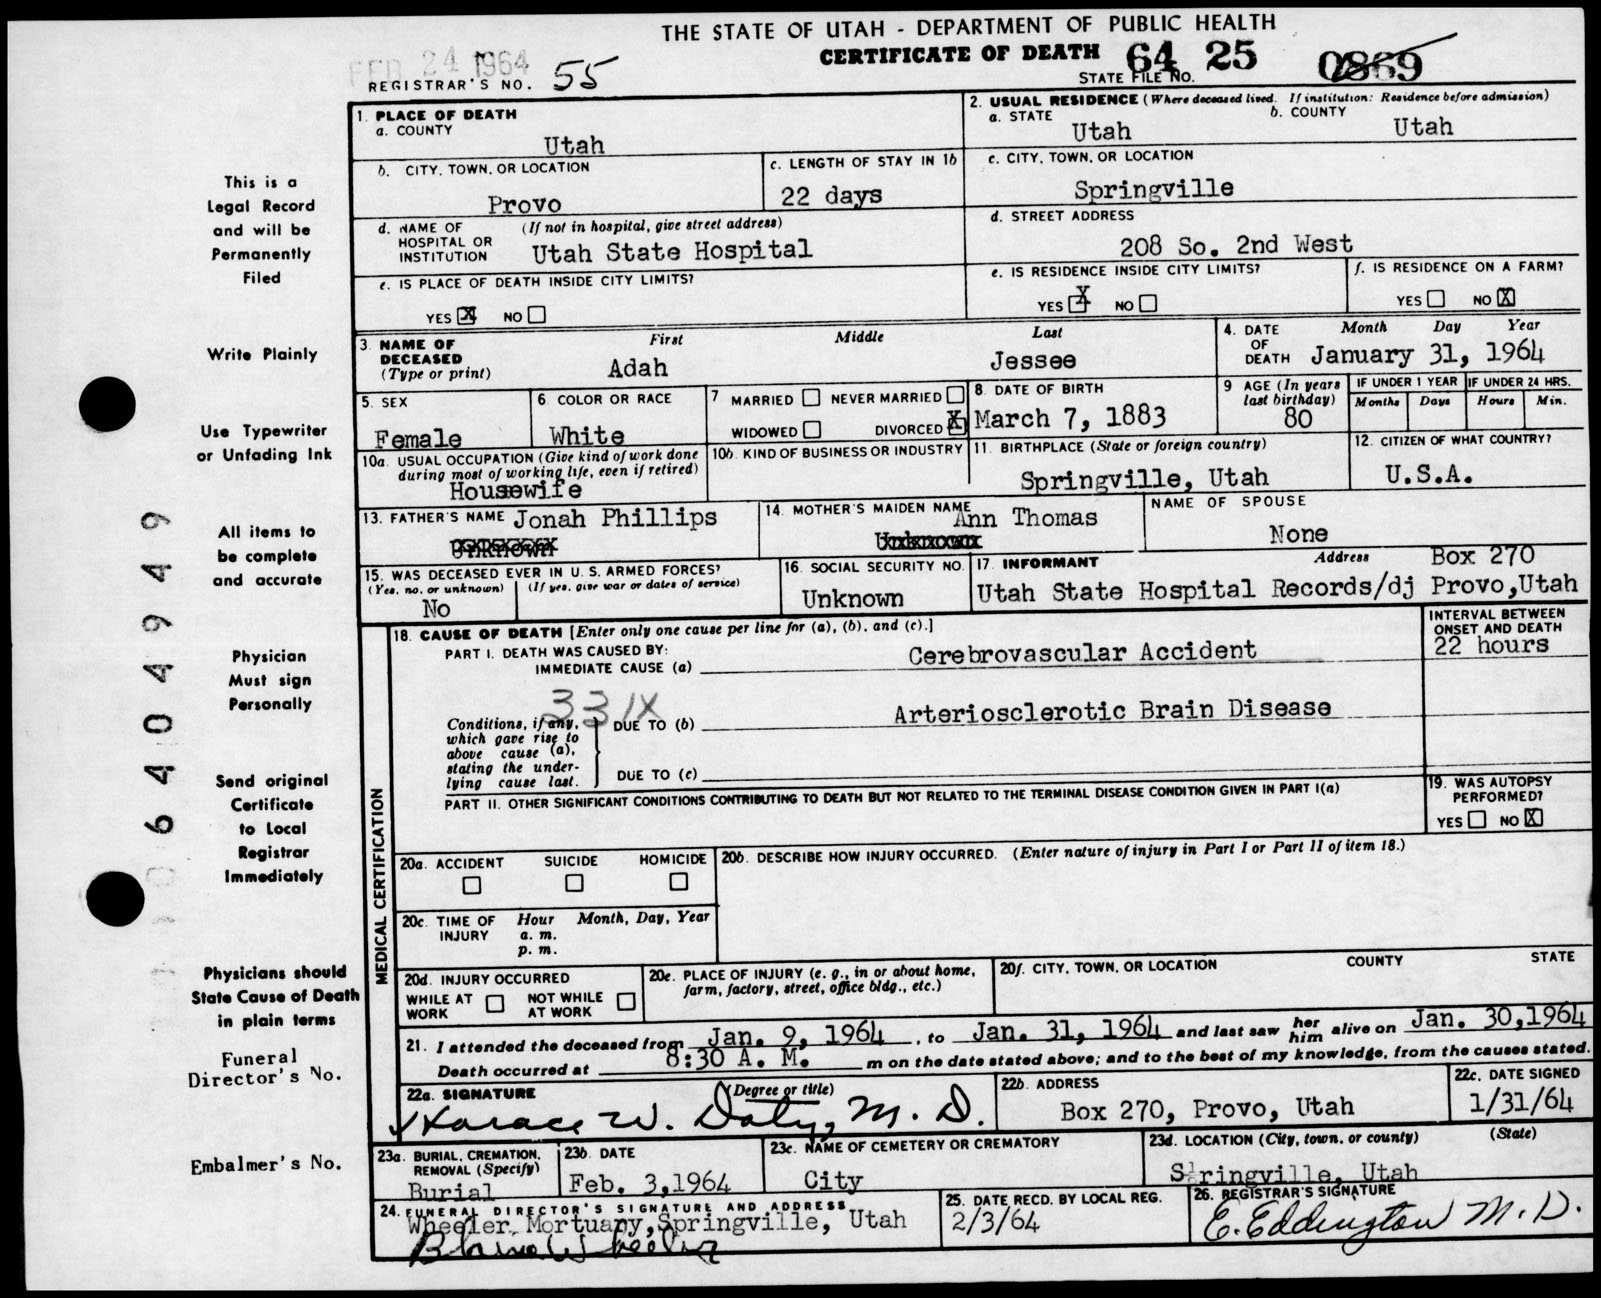 THE STATE OF UTAH - DEPARTMENT OF PUBLIC HEALTH
CERTIFICATE OF DEATH 64 25 0869
STATE FILE NO.
FEB 24 1964
REGISTRAR'S NO. 55
1. PLACE OF DEATH
a. COUNTY
Utah
2. USUAL RESIDENCE (Where deceased lived. If institution: Residence before admission)
a. STATE Utah b. COUNTY Utah
b. CITY, TOWN, OR LOCATION
Provo
c. LENGTH OF STAY IN 1b
22 days
c. CITY, TOWN, OR LOCATION
Springville
d. NAME OF HOSPITAL OR INSTITUTION (If not in hospital, give street address)
Utah State Hospital
d. STREET ADDRESS
208 So. 2nd West
e. IS PLACE OF DEATH INSIDE CITY LIMITS?
YES X NO
e. IS RESIDENCE INSIDE CITY LIMITS?
YES X NO
f. IS RESIDENCE ON A FARM?
YES NO X
3. NAME OF DECEASED (Type or print)
First Middle Last
Adah Jessee
4. DATE OF DEATH Month Day Year
January 31, 1964
5. SEX
Female
6. COLOR OR RACE
White
7 MARRIED NEVER MARRIED
WIDOWED DIVORCED X
8. DATE OF BIRTH
March 7, 1883
9 AGE (In years last birthday)
80
IF UNDER 1 YEAR IF UNDER 24 HRS.
Months Days Hours Min.
10a. USUAL OCCUPATION (Give kind of work done during most of working life, even if retired)
Housewife
10b. KIND OF BUSINESS OR INDUSTRY
11. BIRTHPLACE (State or foreign country)
Springville, Utah
12. CITIZEN OF WHAT COUNTRY?
U.S.A.
13. FATHER'S NAME Jonah Phillips
Unknown
14. MOTHER'S MAIDEN NAME
Ann Thomas
Unknown
NAME OF SPOUSE
None
15. WAS DECEASED EVER IN U. S. ARMED FORCES?
(Yes, no, or unknown) (If yes, give war or dates of service)
No
16. SOCIAL SECURITY NO.
Unknown
17. INFORMANT Address Box 270
Utah State Hospital Records/dj Provo,Utah
MEDICAL CERTIFICATION
18. CAUSE OF DEATH [Enter only one cause per line for (a), (b), and (c).]
INTERVAL BETWEEN ONSET AND DEATH
PART I. DEATH WAS CAUSED BY:
IMMEDIATE CAUSE (a) Cerebrovascular Accident 22 hours
331X
Conditions, if any, which gave rise to above cause (a), stating the underlying cause last.
DUE TO (b) Arteriosclerotic Brain Disease
DUE TO (c)
PART II. OTHER SIGNIFICANT CONDITIONS CONTRIBUTING TO DEATH BUT NOT RELATED TO THE TERMINAL DISEASE CONDITION GIVEN IN PART I(a)
19. WAS AUTOPSY PERFORMED?
YES NO X
20a. ACCIDENT SUICIDE HOMICIDE
20b. DESCRIBE HOW INJURY OCCURRED. (Enter nature of injury in Part I or Part II of item 18.)
20c. TIME OF INJURY Hour Month, Day, Year
a. m.
p. m.
20d. INJURY OCCURRED
WHILE AT WORK NOT WHILE AT WORK
20e. PLACE OF INJURY (e. g., in or about home, farm, factory, street, office bldg., etc.)
20f. CITY, TOWN, OR LOCATION COUNTY STATE
21. I attended the deceased from Jan. 9, 1964, to Jan. 31, 1964 and last saw her him alive on Jan. 30,1964
Death occurred at 8:30 A. M. m on the date stated above; and to the best of my knowledge, from the causes stated.
22a. SIGNATURE (Degree or title)
Horace W. Doty, M. D.
22b. ADDRESS
Box 270, Provo, Utah
22c. DATE SIGNED
1/31/64
23a. BURIAL, CREMATION, REMOVAL (Specify)
Burial
23b. DATE
Feb. 3,1964
23c. NAME OF CEMETERY OR CREMATORY
City
23d. LOCATION (City, town, or county) (State)
Springville, Utah
24. FUNERAL DIRECTOR'S SIGNATURE AND ADDRESS
Wheeler Mortuary,Springville, Utah
25. DATE RECD. BY LOCAL REG.
2/3/64
26. REGISTRAR'S SIGNATURE
E. Eddington M. D.
This is a
Legal Record
and will be
Permanently
Filed
Write Plainly
Use Typewriter
or Unfading Ink
All items to
be complete
and accurate
Physician
Must sign
Personally
Send original
Certificate
to Local
Registrar
Immediately
Physicians should
State Cause of Death
in plain terms
Funeral
Director's No.
Embalmer's No.
06404949